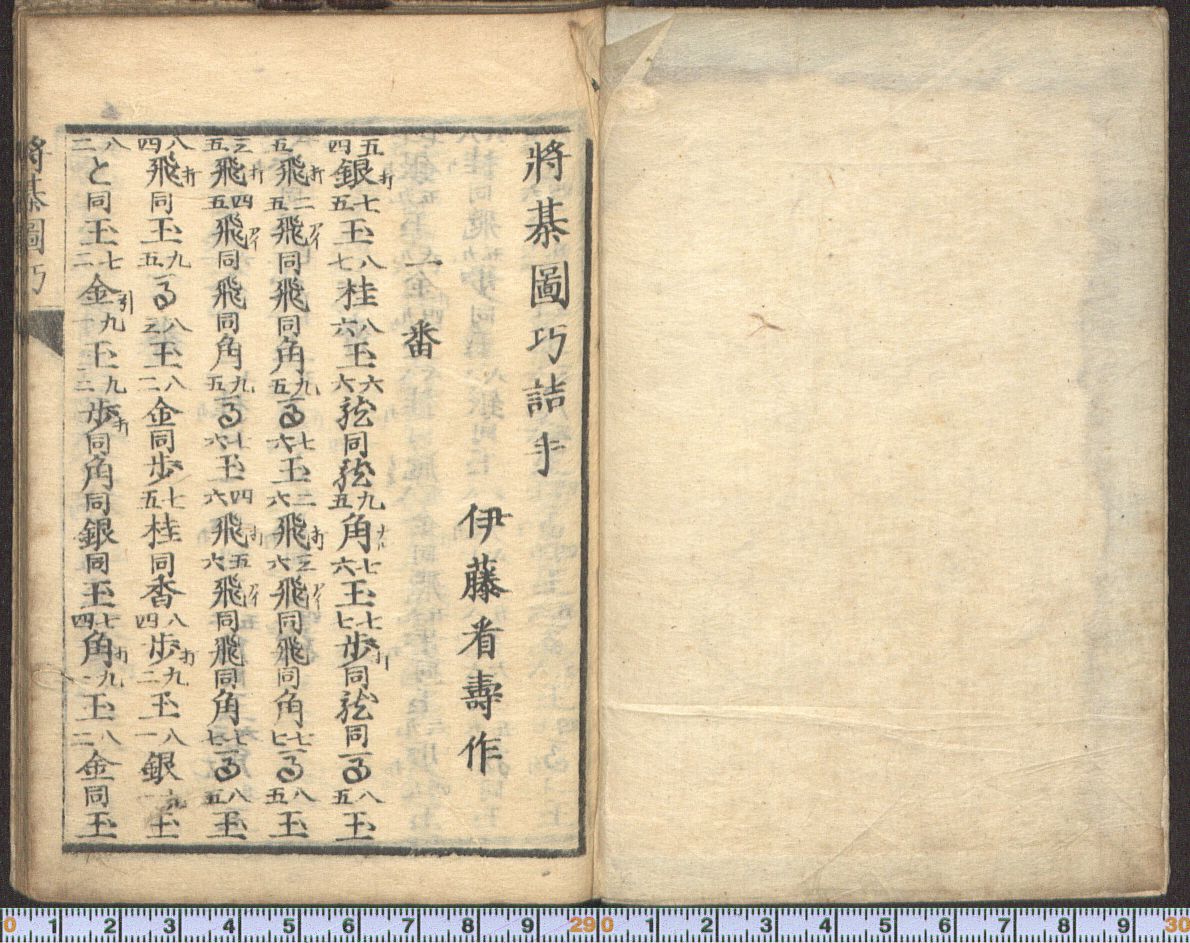 將棊圖巧詰手
伊藤看壽作
一番
五四銀打七五玉八七桂八六玉六六龍同龍九五角ナル七六玉七七歩打同龍同馬八五玉
一五飛打二五飛アイ同飛同角九五馬七六玉二六飛打三六飛アイ同飛同角七七馬八五玉
三五飛打四五飛アイ同飛同角九五馬七六玉四六飛打五六飛アイ同飛同角七七馬八五玉
八四飛打同玉九五馬八三玉八二金同歩七五桂同香八四歩打九二玉八一銀九一玉
八二と同玉七二金引九一玉九二歩打同角同銀同玉七四角打九一玉八二金同玉
將棊圖巧
0 1 2 3 4 5 6 7 8 9 1 2 3 4 5 6 7 8 9 30